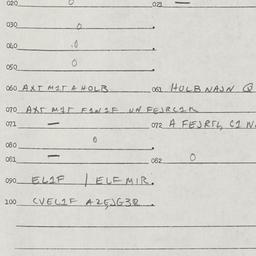 020 0 021 —
030 0
040 .0
050 0
060 AXT M1T A HOLB 061 HOLBNAJN Q
070 AXT M1T F1N1F UN FEJRC1R
071 — 072 A FEJRTL, C1 N
080 0
081 — 082 0
090 EL1F / ELFMIR.
100 CVEL1F AZEJG3R